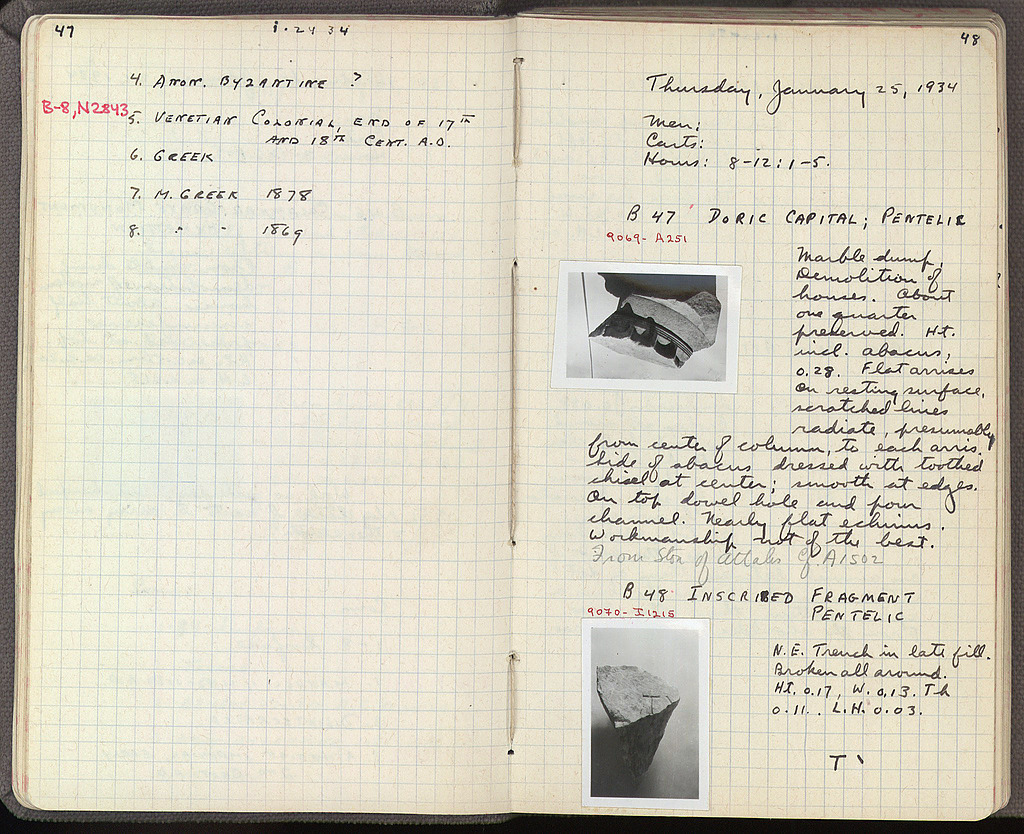 47
i.24 34
4. ANON. BYZANTINE ?
B-8, N2843
5. VENETIAN COLONIAL, END OF 17TH
AND 18TH CENT. A.D.
6. GREEK
7. M. GREEK 1878
8. " " 1869
48
Thursday, January 25, 1934
Men:
Carts:
Hours: 8-12; 1-5.
B 47 DORIC CAPITAL; PENTELIC
9069- A251
Marble dump,
Demolition of
houses. About
one quarter
preserved. Ht.
incl. abacus,
0.28. Flat arrises
On resting surface,
scratched lines
radiate, presumably
from center of column, to each arris.
Side of abacus dressed with toothed
chisel at center; smooth at edges.
On top dowel hole and pour
channel. Nearly flat echinus.
Workmanship not of the best.
From Stoa of Attalos Cf. A1502
B 48 INSCRIBED FRAGMENT
PENTELIC
9070- I1215
N.E. Trench in late fill.
Broken all around.
Ht. 0.17, W. 0.13. Th
0.11. L.H. 0.03.
T `